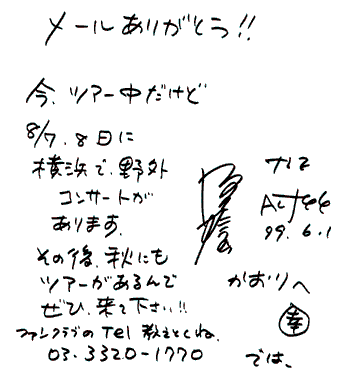 メールありがとう!!
今、ツアー中だけど
8/7、8日に
横浜で、野外
コンサートが
あります。
その後、秋にも
ツアーがあるんで
ぜひ、来て下さい!!
ファンクラブのTel 教えとくね。
03-3320-1770
99.6.1
かおりへ
幸
では、